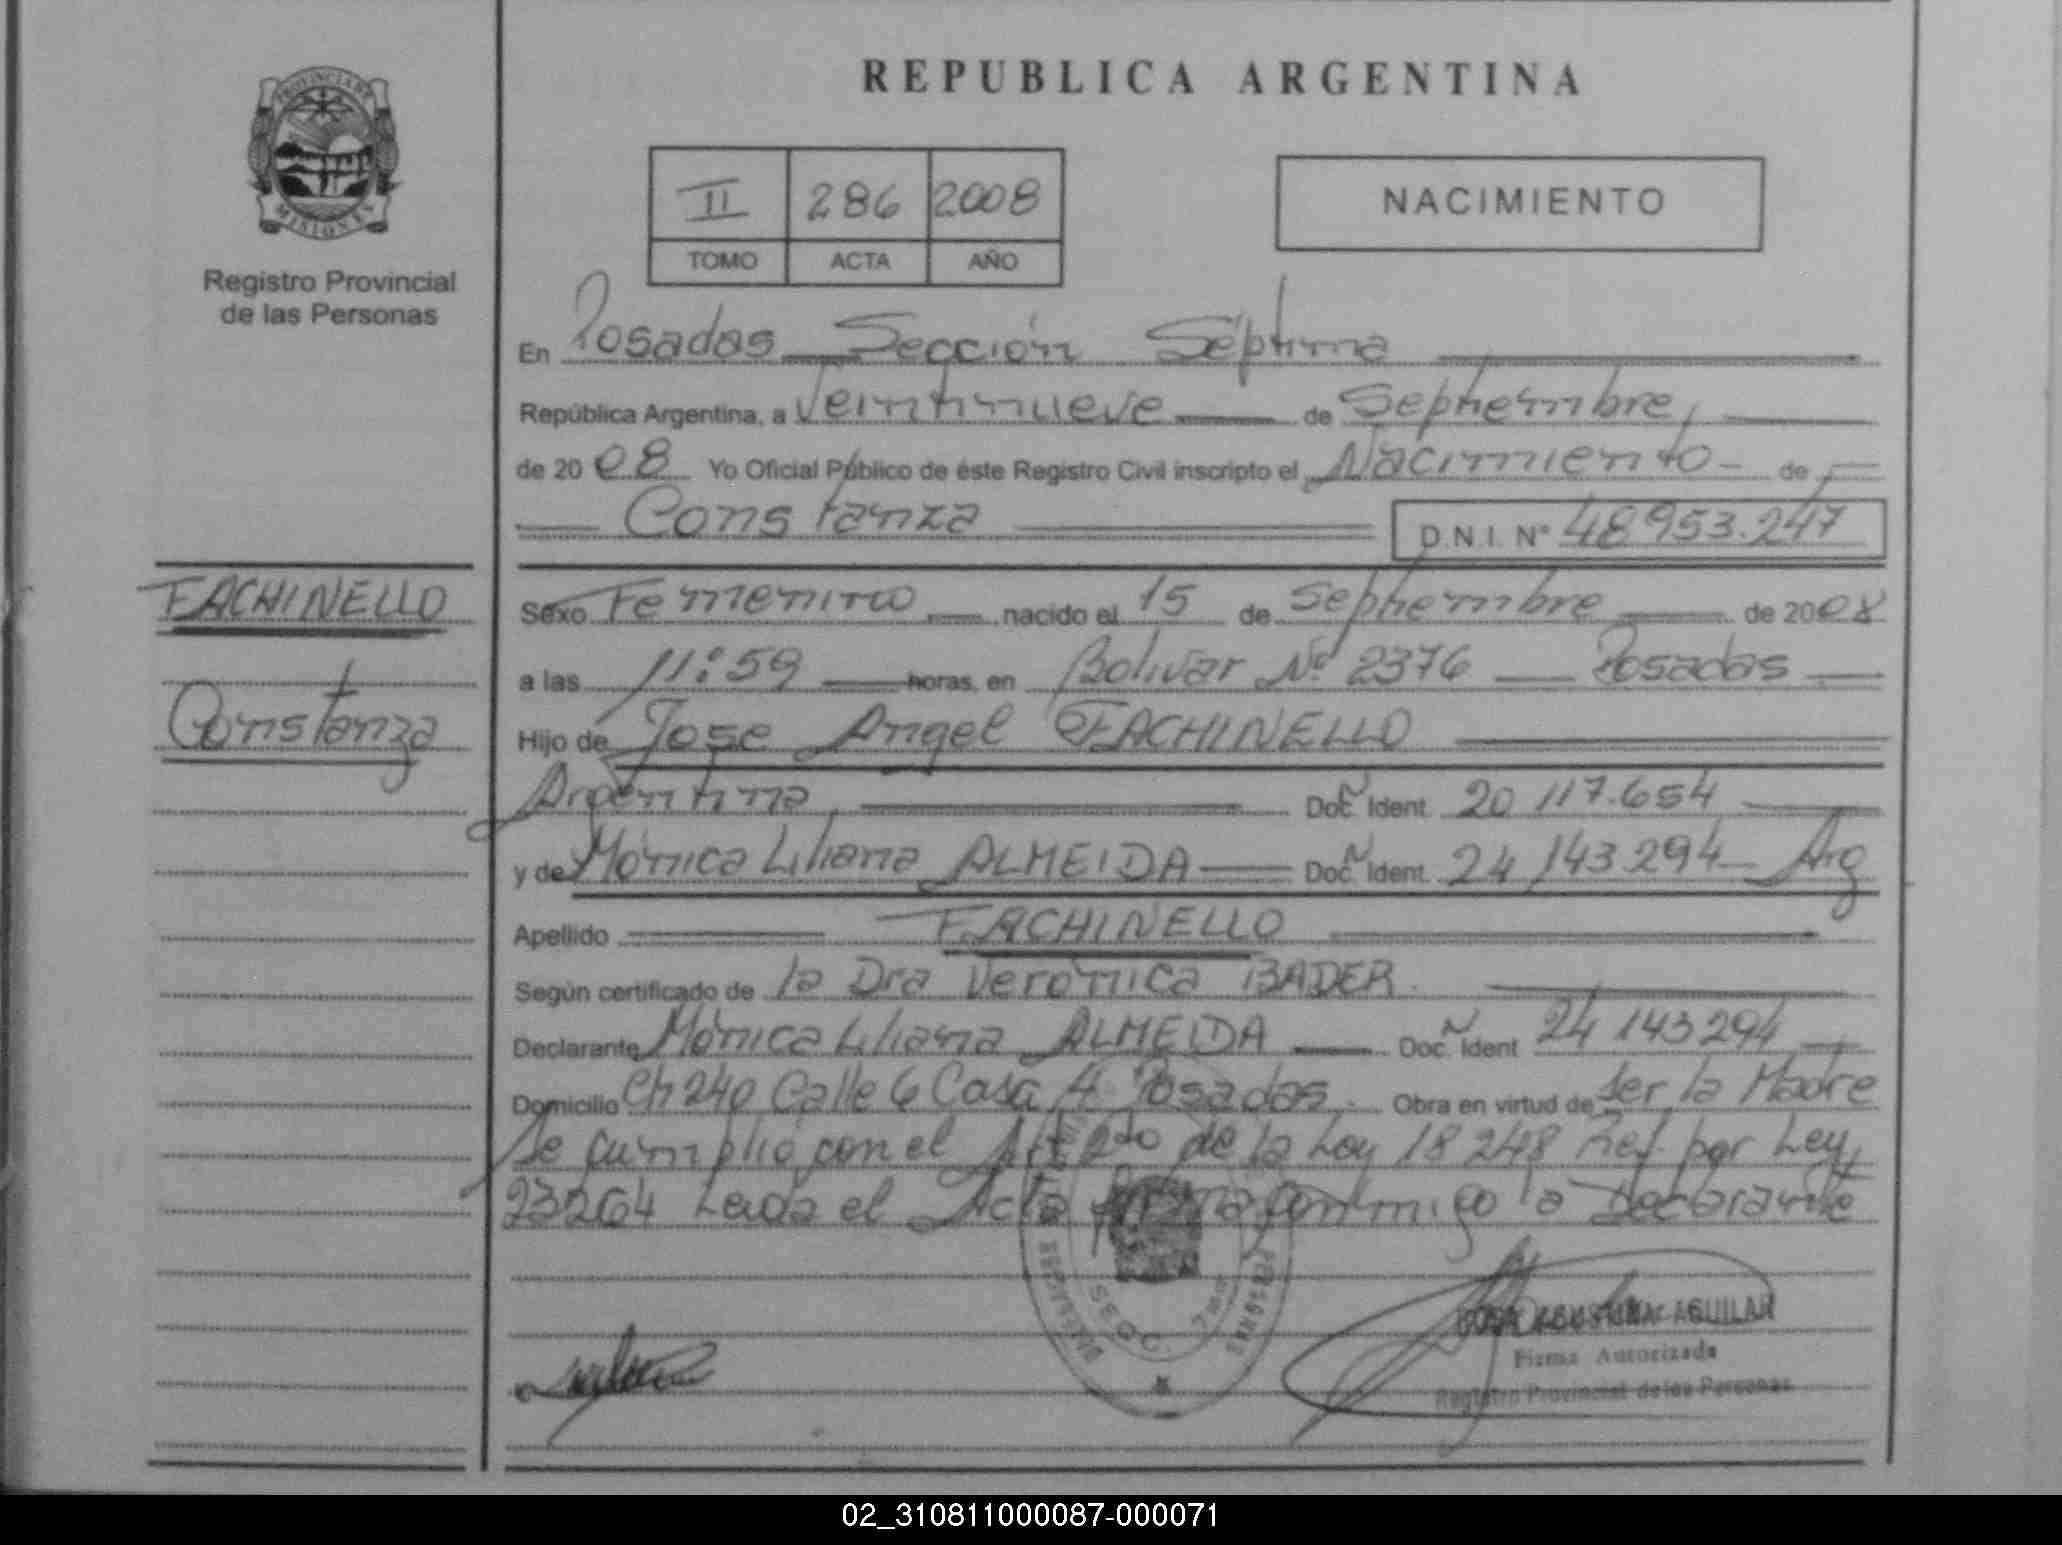 REPUBLICA ARGENTINA
PROVINCIA DE
MISIONES
Registro Provincial
de las Personas
II 286 2008
TOMO ACTA AÑO
NACIMIENTO
En Posadas Sección Séptima
República Argentina, a Veintinueve de Septiembre,
de 2008 Yo Oficial Público de éste Registro Civil inscripto el Nacimiento de
Constanza D.N.I. Nº 48953.247
FACHINELLO
Constanza
Sexo Femenino nacido el 15 de Septiembre de 2008
a las 11:59 horas, en Bolivar Nº 2376 Posadas
Hijo de Jose Angel FACHINELLO
Argentina Doc. Ident. 20 117.654
y de Mónica Liliana ALMEIDA Doc. Ident. 24 143 294 Arg
Apellido FACHINELLO
Según certificado de la Dra Verónica BADER.
Declarante Mónica Liliana ALMEIDA Doc. Ident 24 143 294
Domicilio Ch 240 Calle 6 Casa 4 Posadas. Obra en virtud de ser la Madre
Se cumplió con el Art 2do de la Ley 18 248 Ref. por Ley
23264 Leida el Acta firma conmigo la Declarante
AGUILAR
Firma Autorizada
Registro Provincial de las Personas
02_310811000087-000071